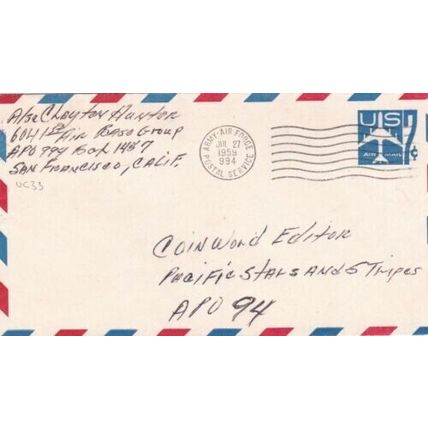 A/2c Clayton Hunter
6041 1st Air Base Group
APO 994 Box 1487
San Francisco, Calif.
UC33
ARMY-AIR FORCE
JUL 27
1959
994
POSTAL SERVICE
U.S.
7¢
AIR MAIL
Coinword Editor
Pacific Stars and Stripes
APO 94